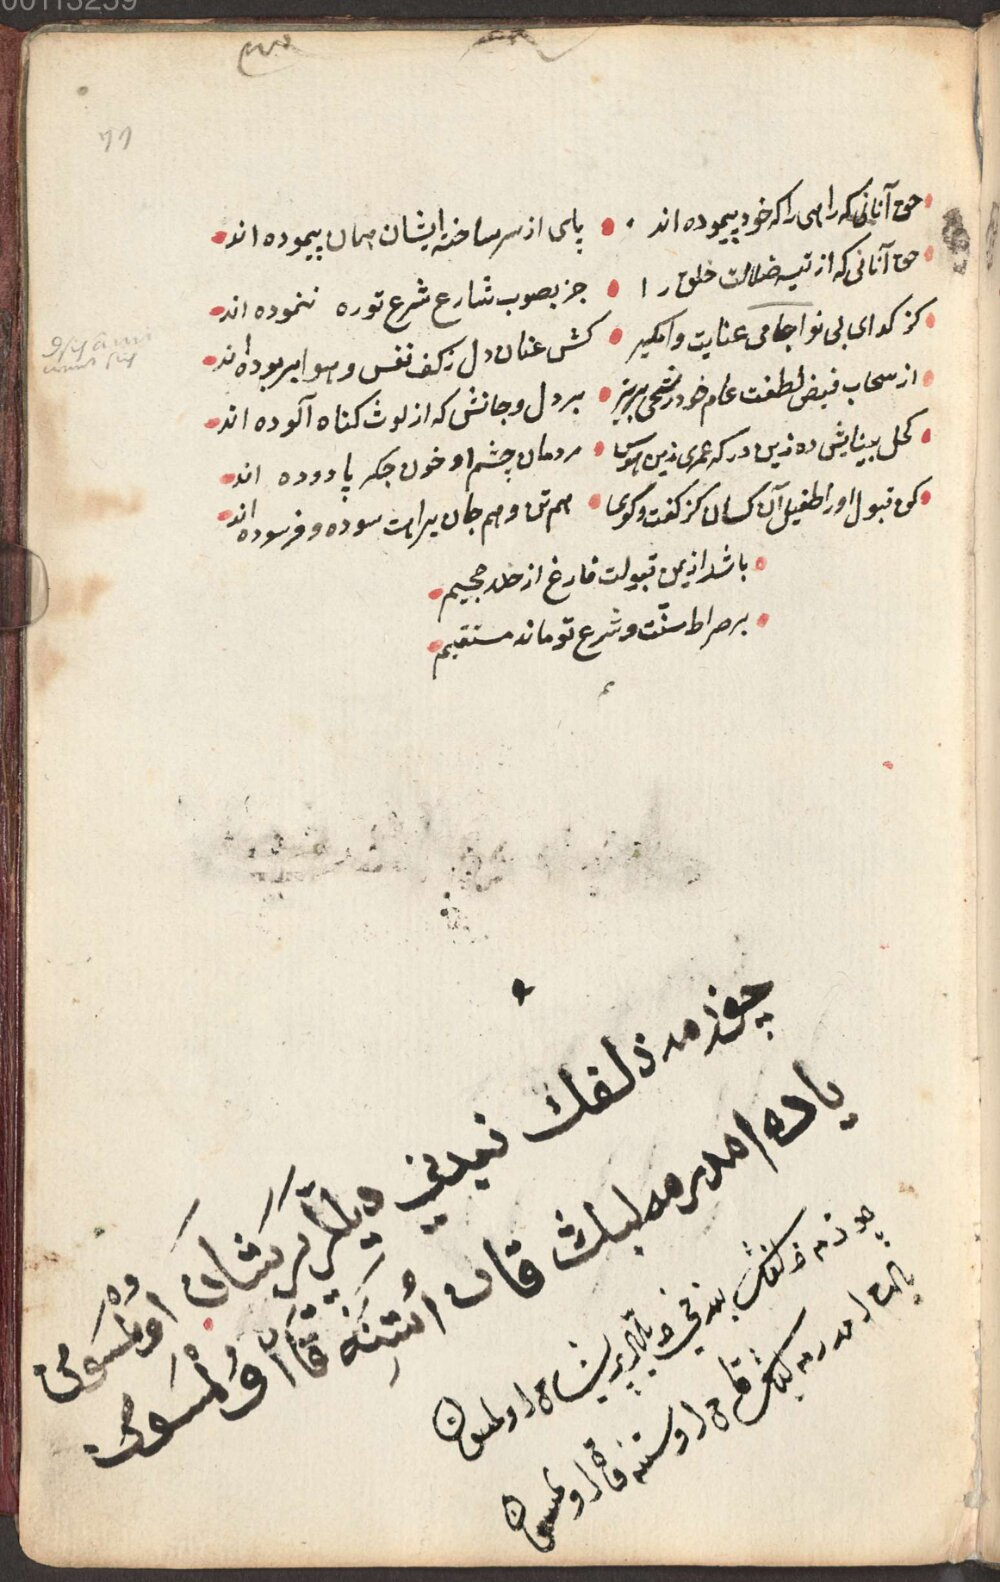 00113259
77
حق آنانی که راهی را که خود پیموده اند • پای از سر ساخته ایشان همان پیموده اند
حق آنانی که از تیه ضلالت خلق را • جز بصوب شارع شرع تو ره ننموده اند
کز کدای بی نوا جامی عنایت وامکیر • کش عنان دل زکف نفس و هوا بربوده اند
از سحاب فیض لطفت عام خود رشحی بریز • بر دل و جانش که از لوث کناه آلوده اند
کحل بینایش ده زین در که عمری زین هوس • مردمان چشم او خون جکر پالوده اند
کن قبول او را طفیل آن کسان کز کفت و کوی • هم تن و هم جان براهت سوده و فرسوده اند
باشد از یمن قبولت فارغ از خلد و جحیم
بر صراط سنّت و شرع تو ماند مستقیم
چوزمه زلفك بندنی دیللر پریشان اولمسون
یاده امدرمه لبك قان اُستنه قان اولمسون
چوزمه زلفك بندنی دیللر پریشان اولمسون
یاده امدرمه لبك قان اوستنه قان اولمسون